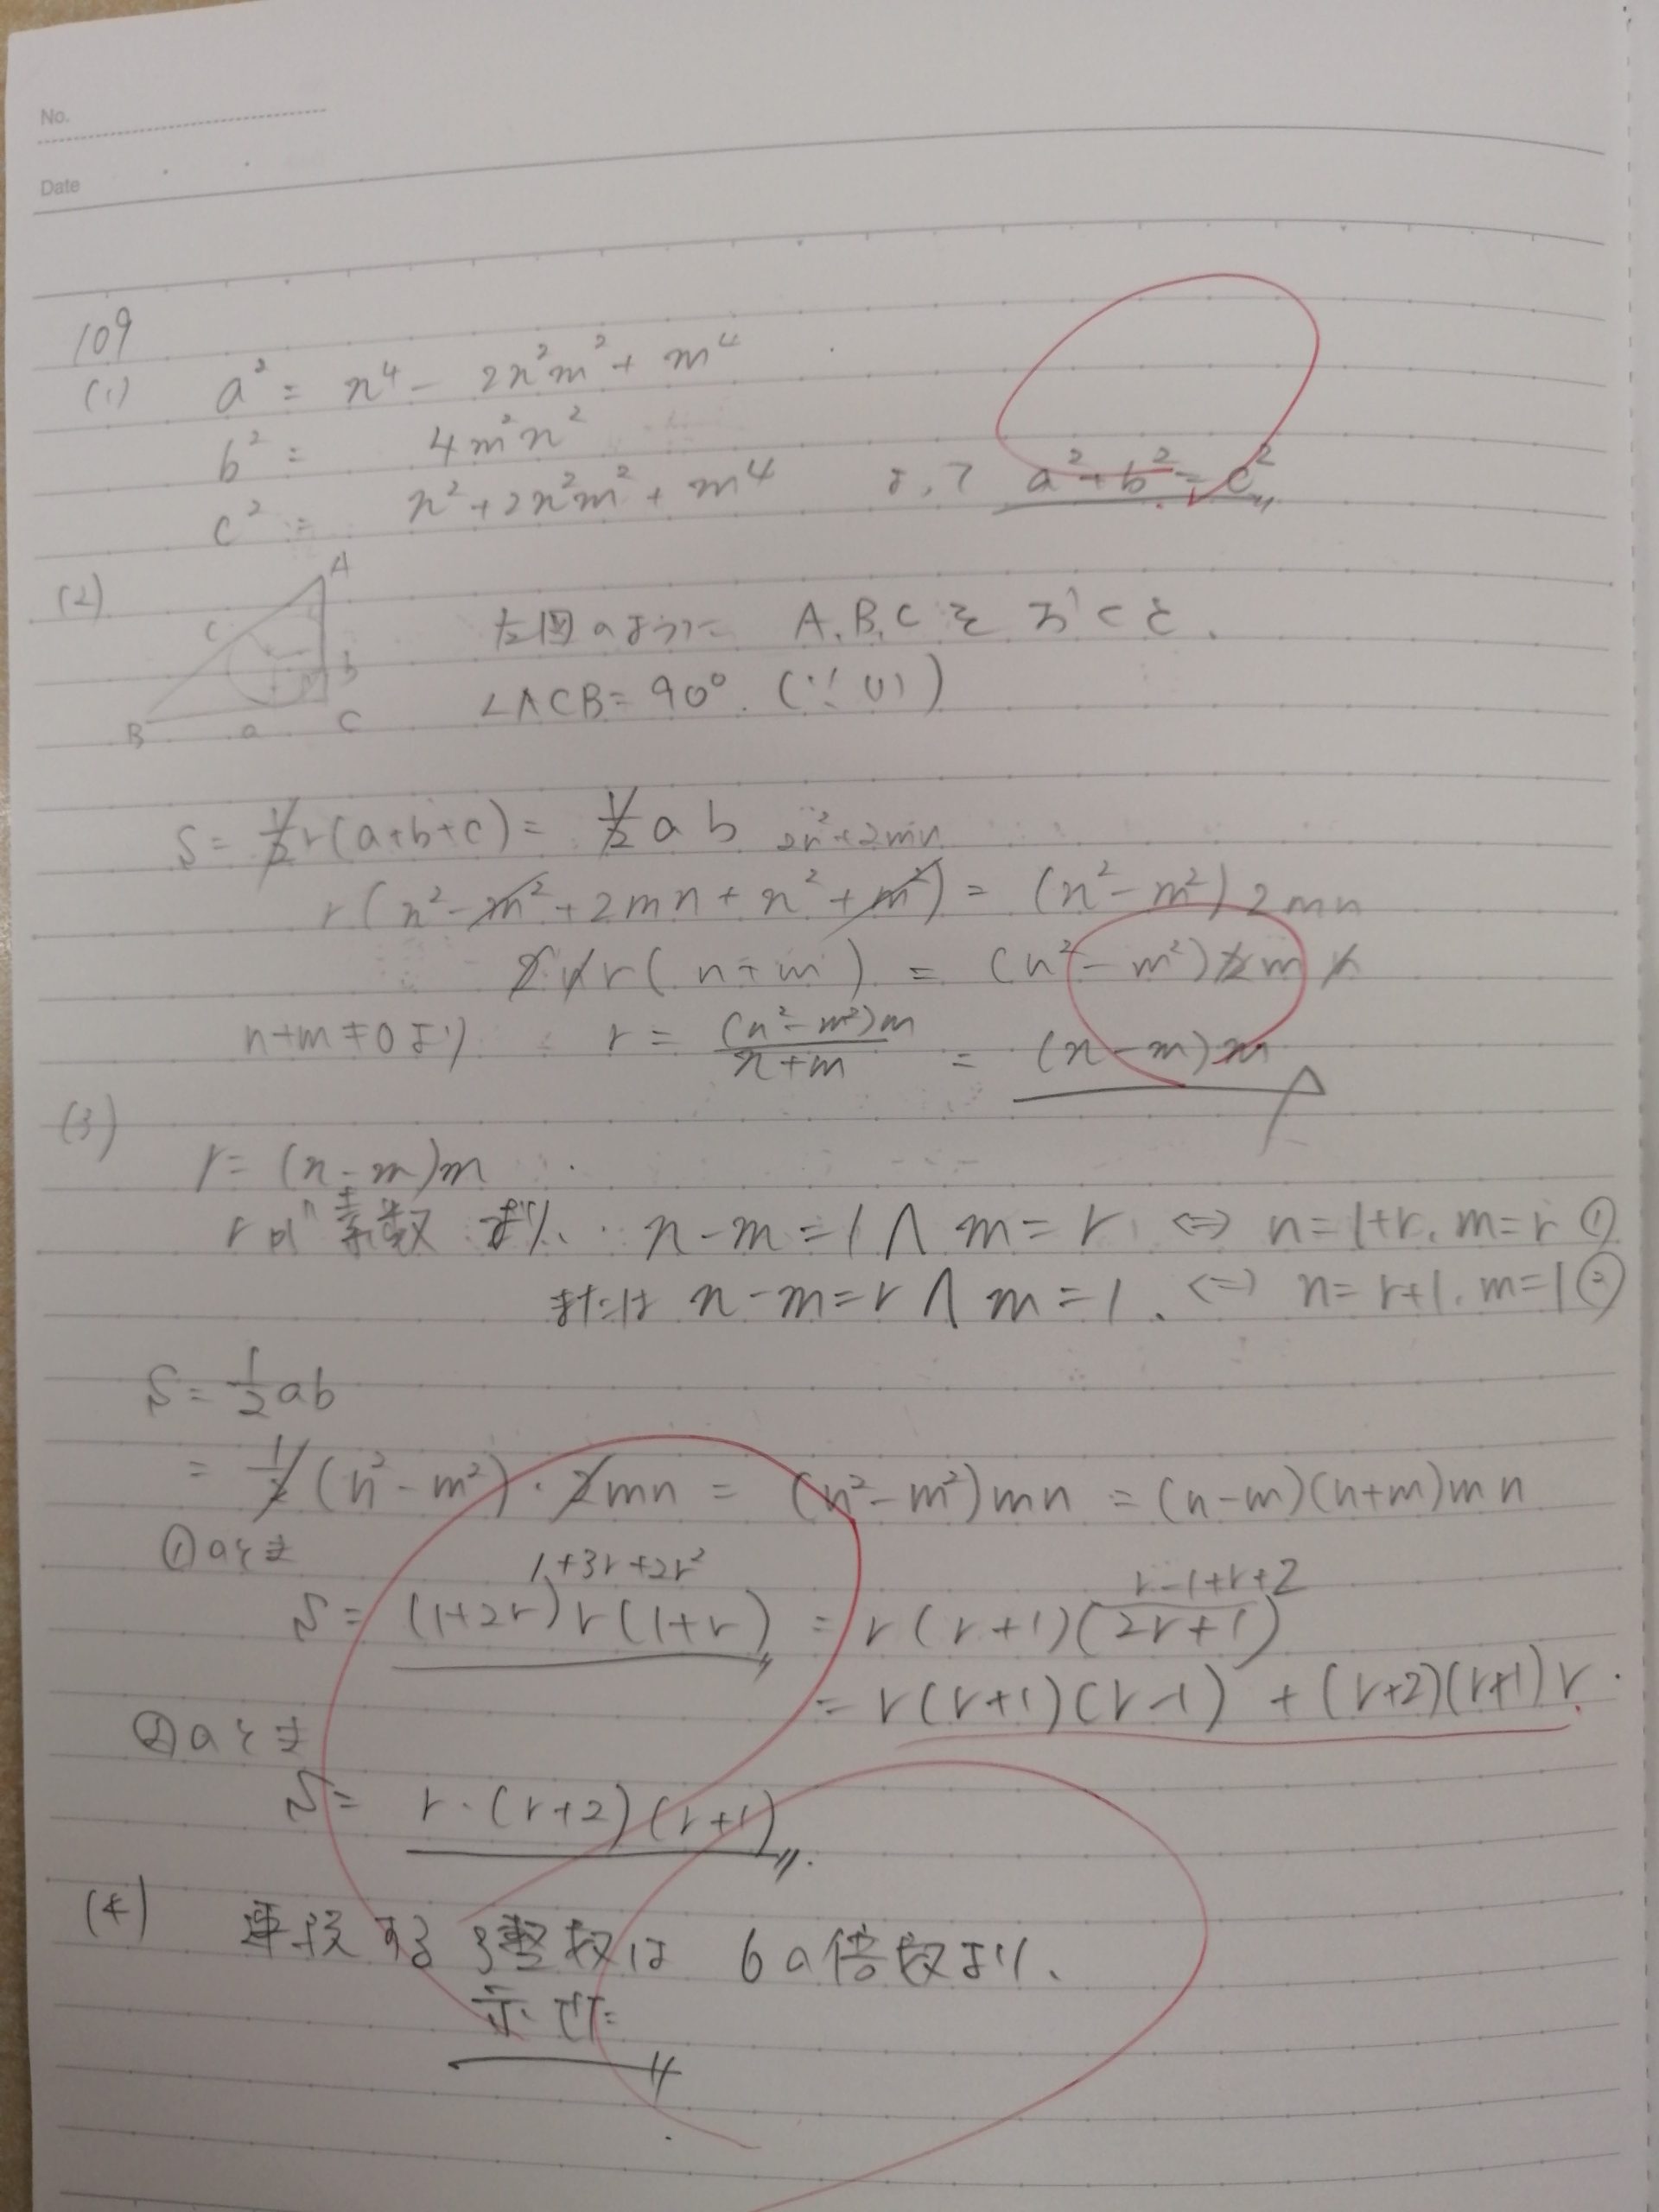 No.
Date
109
(1) a² = n⁴ - 2n²m² + m⁴
b² = 4m²n²
c² = n² + 2n²m² + m⁴ よって a² + b² = c²
(2) A
c
b
B a C
左図のように A, B, C をおくと、
∠ACB = 90°. (∵ (1))
S = 1/2 r(a+b+c) = 1/2 a b
2n² + 2mn
r(n² - m² + 2mn + n² + m²) = (n² - m²) 2mn
2nr(n+m) = (n² - m²) 2mn
n+m ≠ 0 より r = (n² - m²)m / (n+m) = (n-m)m
(3)
r = (n-m)m
rが素数より、 n-m = 1 ∧ m = r ⇔ n = 1+r, m = r ①
または n-m = r ∧ m = 1. ⇔ n = r+1, m = 1 ②
S = 1/2 ab
= 1/2 (n² - m²)・2mn = (n² - m²)mn = (n-m)(n+m)mn
①のとき
1+3r+2r² r-1+r+2
S = (1+2r)r(1+r) = r(r+1)(2r+1)
= r(r+1)(r-1) + (r+2)(r+1)r.
②のとき
S = r・(r+2)(r+1)
(4) 連続する3整数は 6の倍数より、
示せた